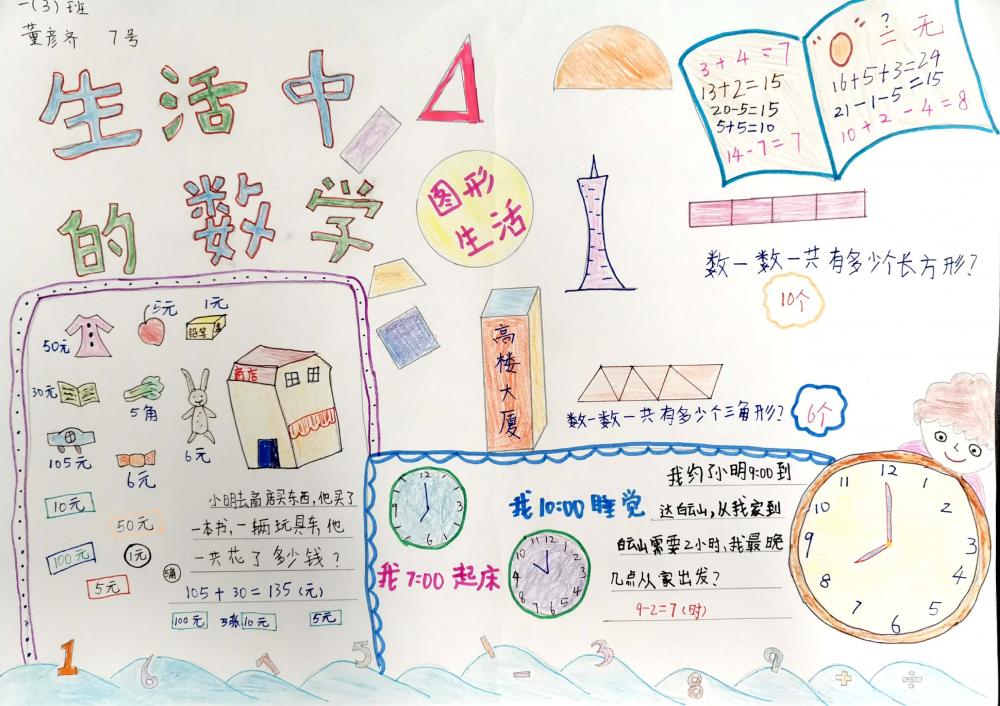 一(3)班
董彦齐 7号
生活中
的数学
图形
生活
3+4=7
13+2=15
20-5=15
5+5=10
14-7=7
"0"?=无
16+5+3=24
21-1-5=15
10+2-4=8
数一数一共有多少个长方形?
10个
高楼大厦
数一数一共有多少个三角形?
6个
50元
5元
1元
铅笔
30元
5角
商店
105元
6元
6元
10元
50元
100元
1元
5元
5角
小明去商店买东西,他买了
一本书,一辆玩具车,他
一共花了多少钱?
105+30=135(元)
100元 3张10元 5元
12
3
6
9
我7:00起床
我10:00睡觉
12
1
2
3
4
5
6
7
8
4
10
11
我约了小明9:00到
达白云山,从我家到
白云山需要2小时,我最晚
几点从家出发?
9-2=7(时)
12
1
2
3
4
5
6
7
8
9
10
11
1 6 7 5 1 - 3 8 9 + ÷